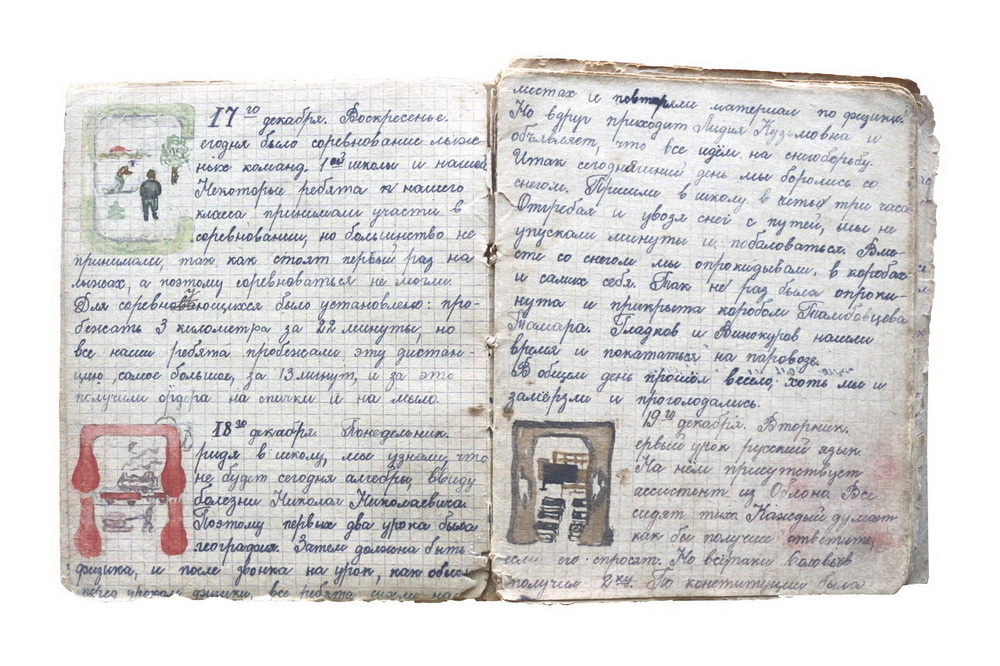 17го декабря. Воскресенье.
егодня было соревнование лыж-
ных команд. 1ой школы и нашей
Некоторые ребята из нашего
класса принимали участи в
соревновании, но большинство не
принимали, так как стоят первый раз на
лыжах, а поэтому соревноваться не могли.
Для соревнующихся было установлено: про-
бежать 3 километра за 22 минуты, но
все наши ребята пробежали эту дистан-
цию, самое большое, за 13 минут, и за это
получили ордера на спички и на мыло.
18го декабря. Понедельник.
ридя в школу, мы узнали, что
не будет сегодня алгебры, ввиду
болезни Николая Николаевича.
Поэтому первых два урока была
география. Затем должна быть
физика, и после звонка на урок, как обычно
перед уроком физики, все ребята сидели на
мистах и повторяли материал по физике.
Но вдруг приходит Лидия Кузьмовна и
объявляет, что все идём на снегоборьбу.
Итак сегодняшний день мы боролись со
снегом. Пришли в школу в четыр три часа
Отгребая и увозя снег с путей, мы не
упускали минуты и побаловаться. Вме-
сте со снегом мы опрокидывали в коробах
и самих себя. Так не раз была опроки-
нута и прикрыта коробом Тамбовцева
Тамара. Гладков и Винокуров нашли
время и покататься на паровозе.
В общем день прошёл весело, хоть мы и
замёрзли и проголодались.
19го декабря. Вторник.
ервый урок русский язык.
На нём присутствует
ассистент из Облона Все
сидят тихо Каждый думает
как бы получше ответить,
если его спросят. Но всётаки Соловьёв
получил 2ку. По конституции была